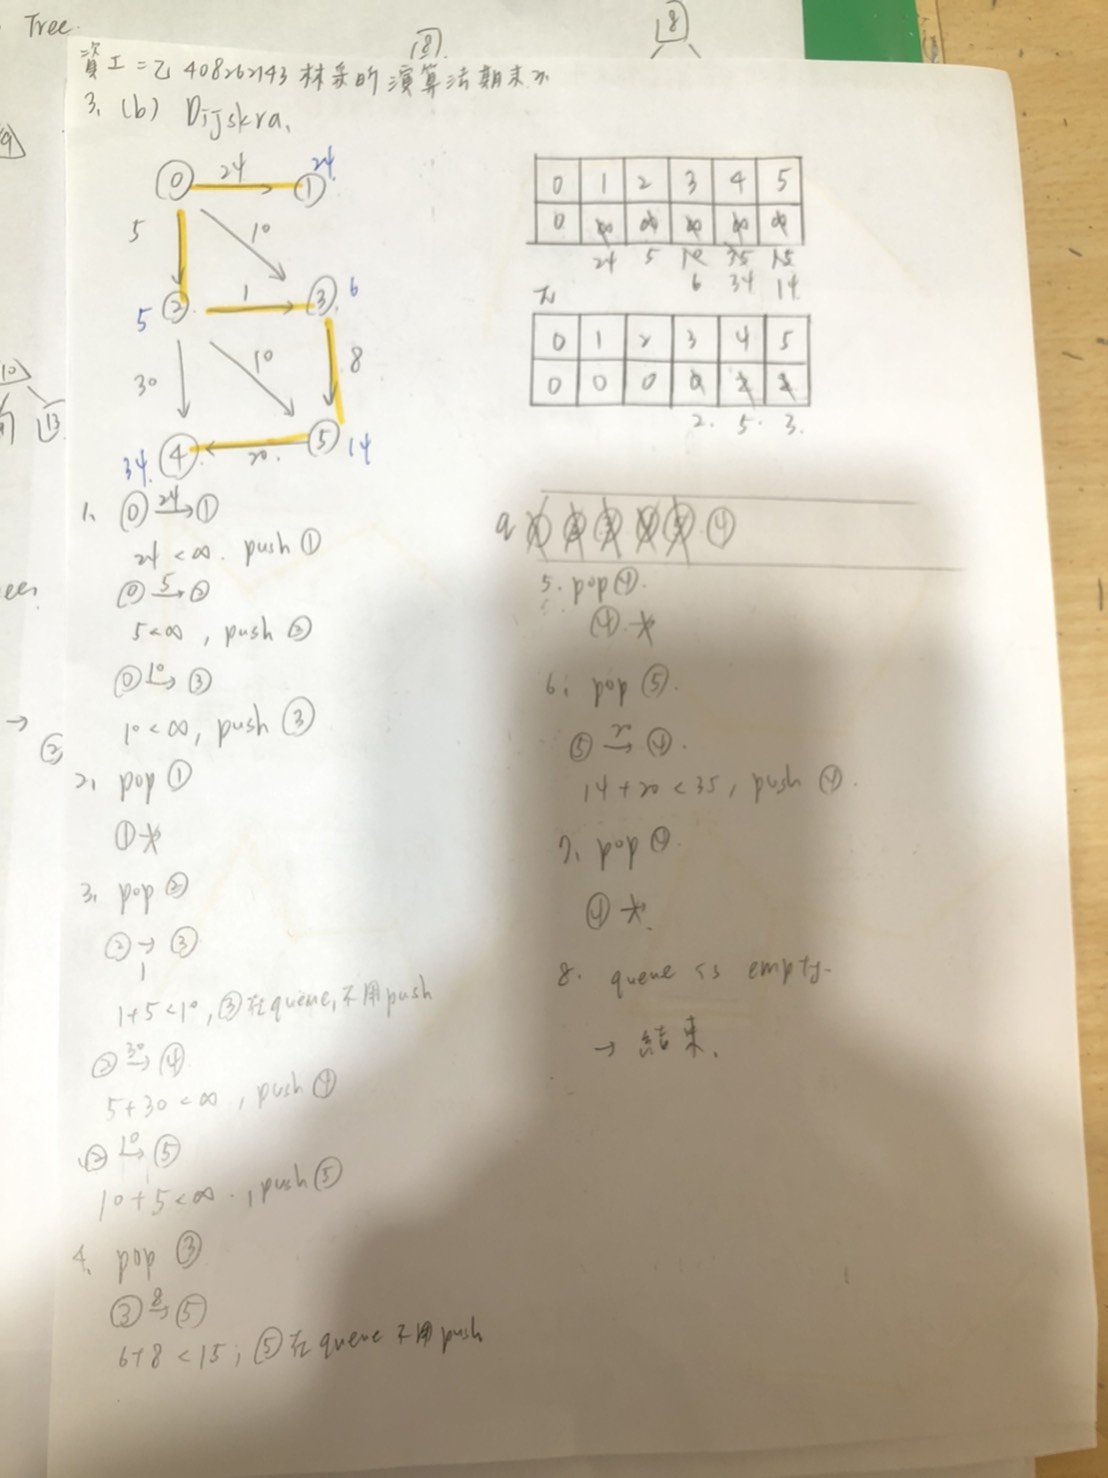 Tree.
18
8
資工=乙 408262143 林采昀 演算法期末
3. (b) Dijskra.
0 24 1 24
5 10
5 2 1 3 6
30 10 8
34 4 20 5 14
0 1 2 3 4 5
0 ∞ ∞ ∞ ∞ ∞
24 5 10 35 15
6 34 14
π
0 1 2 3 4 5
0 0 0 0 2 2
2. 5. 3.
q 1 2 3 4 5 4
1. 0 24→ 1
24 < ∞. push 1
0 5→ 2
5<∞, push 2
0 10→ 3
10<∞, push 3
2. pop 1
1 ✗
3. pop 2
2 → 3
1
1+5<10, 3在queue,不用push
2 30→ 4
5+30<∞, push 4
2 10→ 5
10+5<∞, push 5
4. pop 3
3 8→ 5
6+8<15; 5在queue不用push
5. pop 4.
4 ✗
6. pop 5.
5 20→ 4.
14+20<35, push 4.
7. pop 4.
4 ✗.
8. queue is empty.
→ 結束.
10
13
ees
→
2